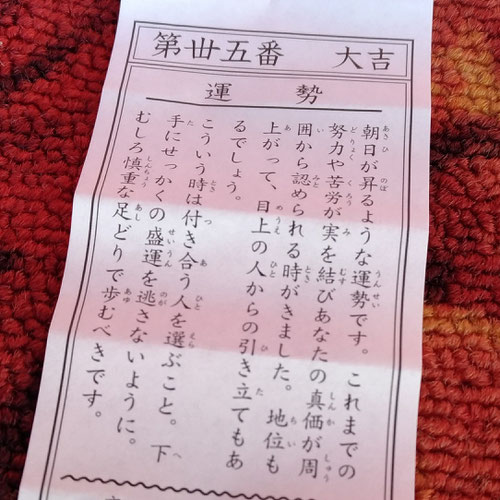 第丗五番　大吉
運勢
朝日が昇るような運勢です。これまでの
努力や苦労が実を結びあなたの真価が周
囲から認められる時がきました。地位も
上がって、目上の人からの引き立てもあ
るでしょう。
こういう時は付き合う人を選ぶこと。下
手にせっかくの盛運を逃さないように。
むしろ慎重な足どりで歩むべきです。